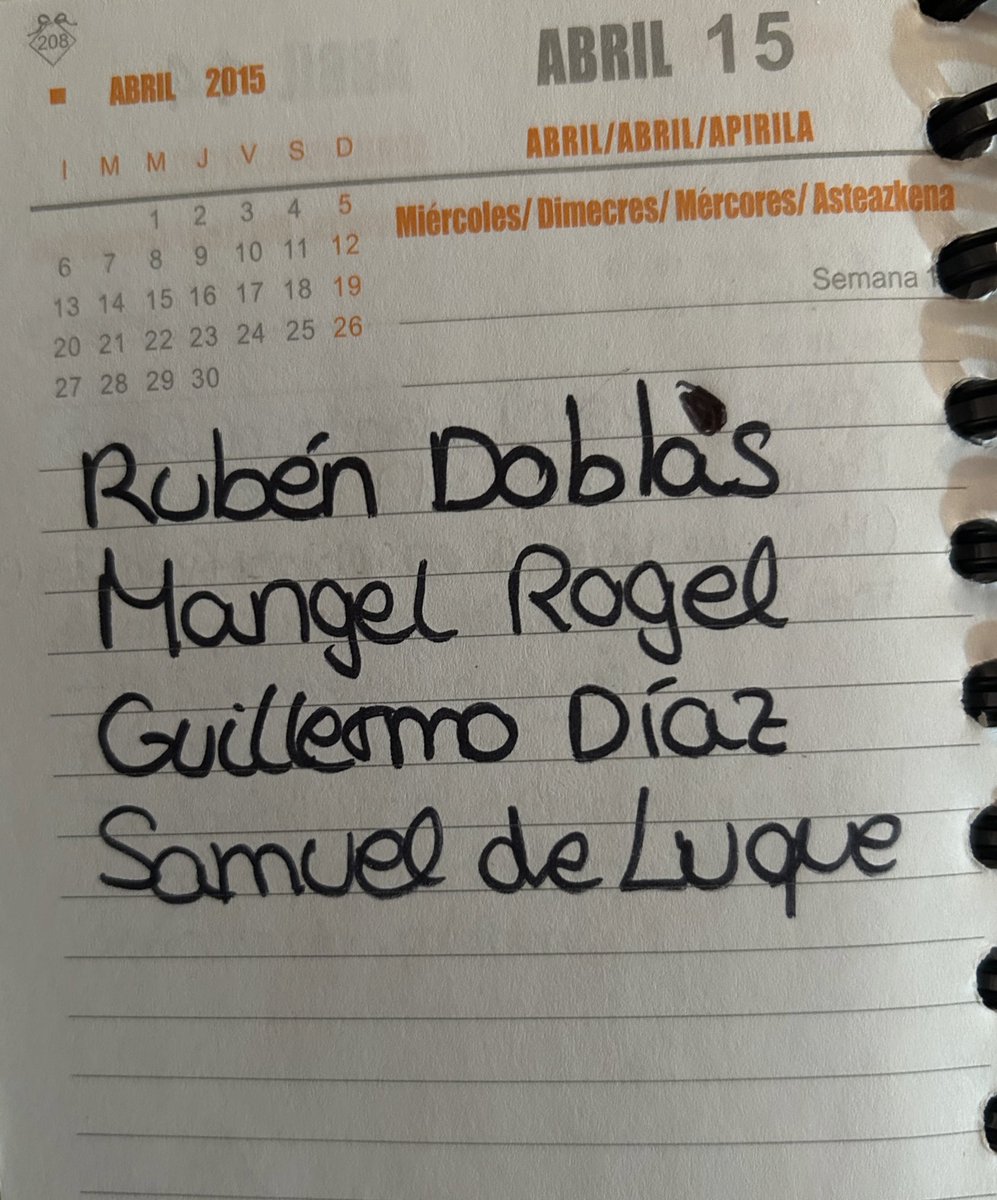 208
ABRIL 15
■ ABRIL 2015
ABRIL/ABRIL/APIRILA
l M M J V S D
Miércoles/ Dimecres/ Mércores/ Asteazkena
1 2 3 4 5
6 7 8 9 10 11 12
Semana
13 14 15 16 17 18 19
20 21 22 23 24 25 26
27 28 29 30
Rubén Doblas
Mangel Rogel
Guillermo Díaz
Samuel de Luque